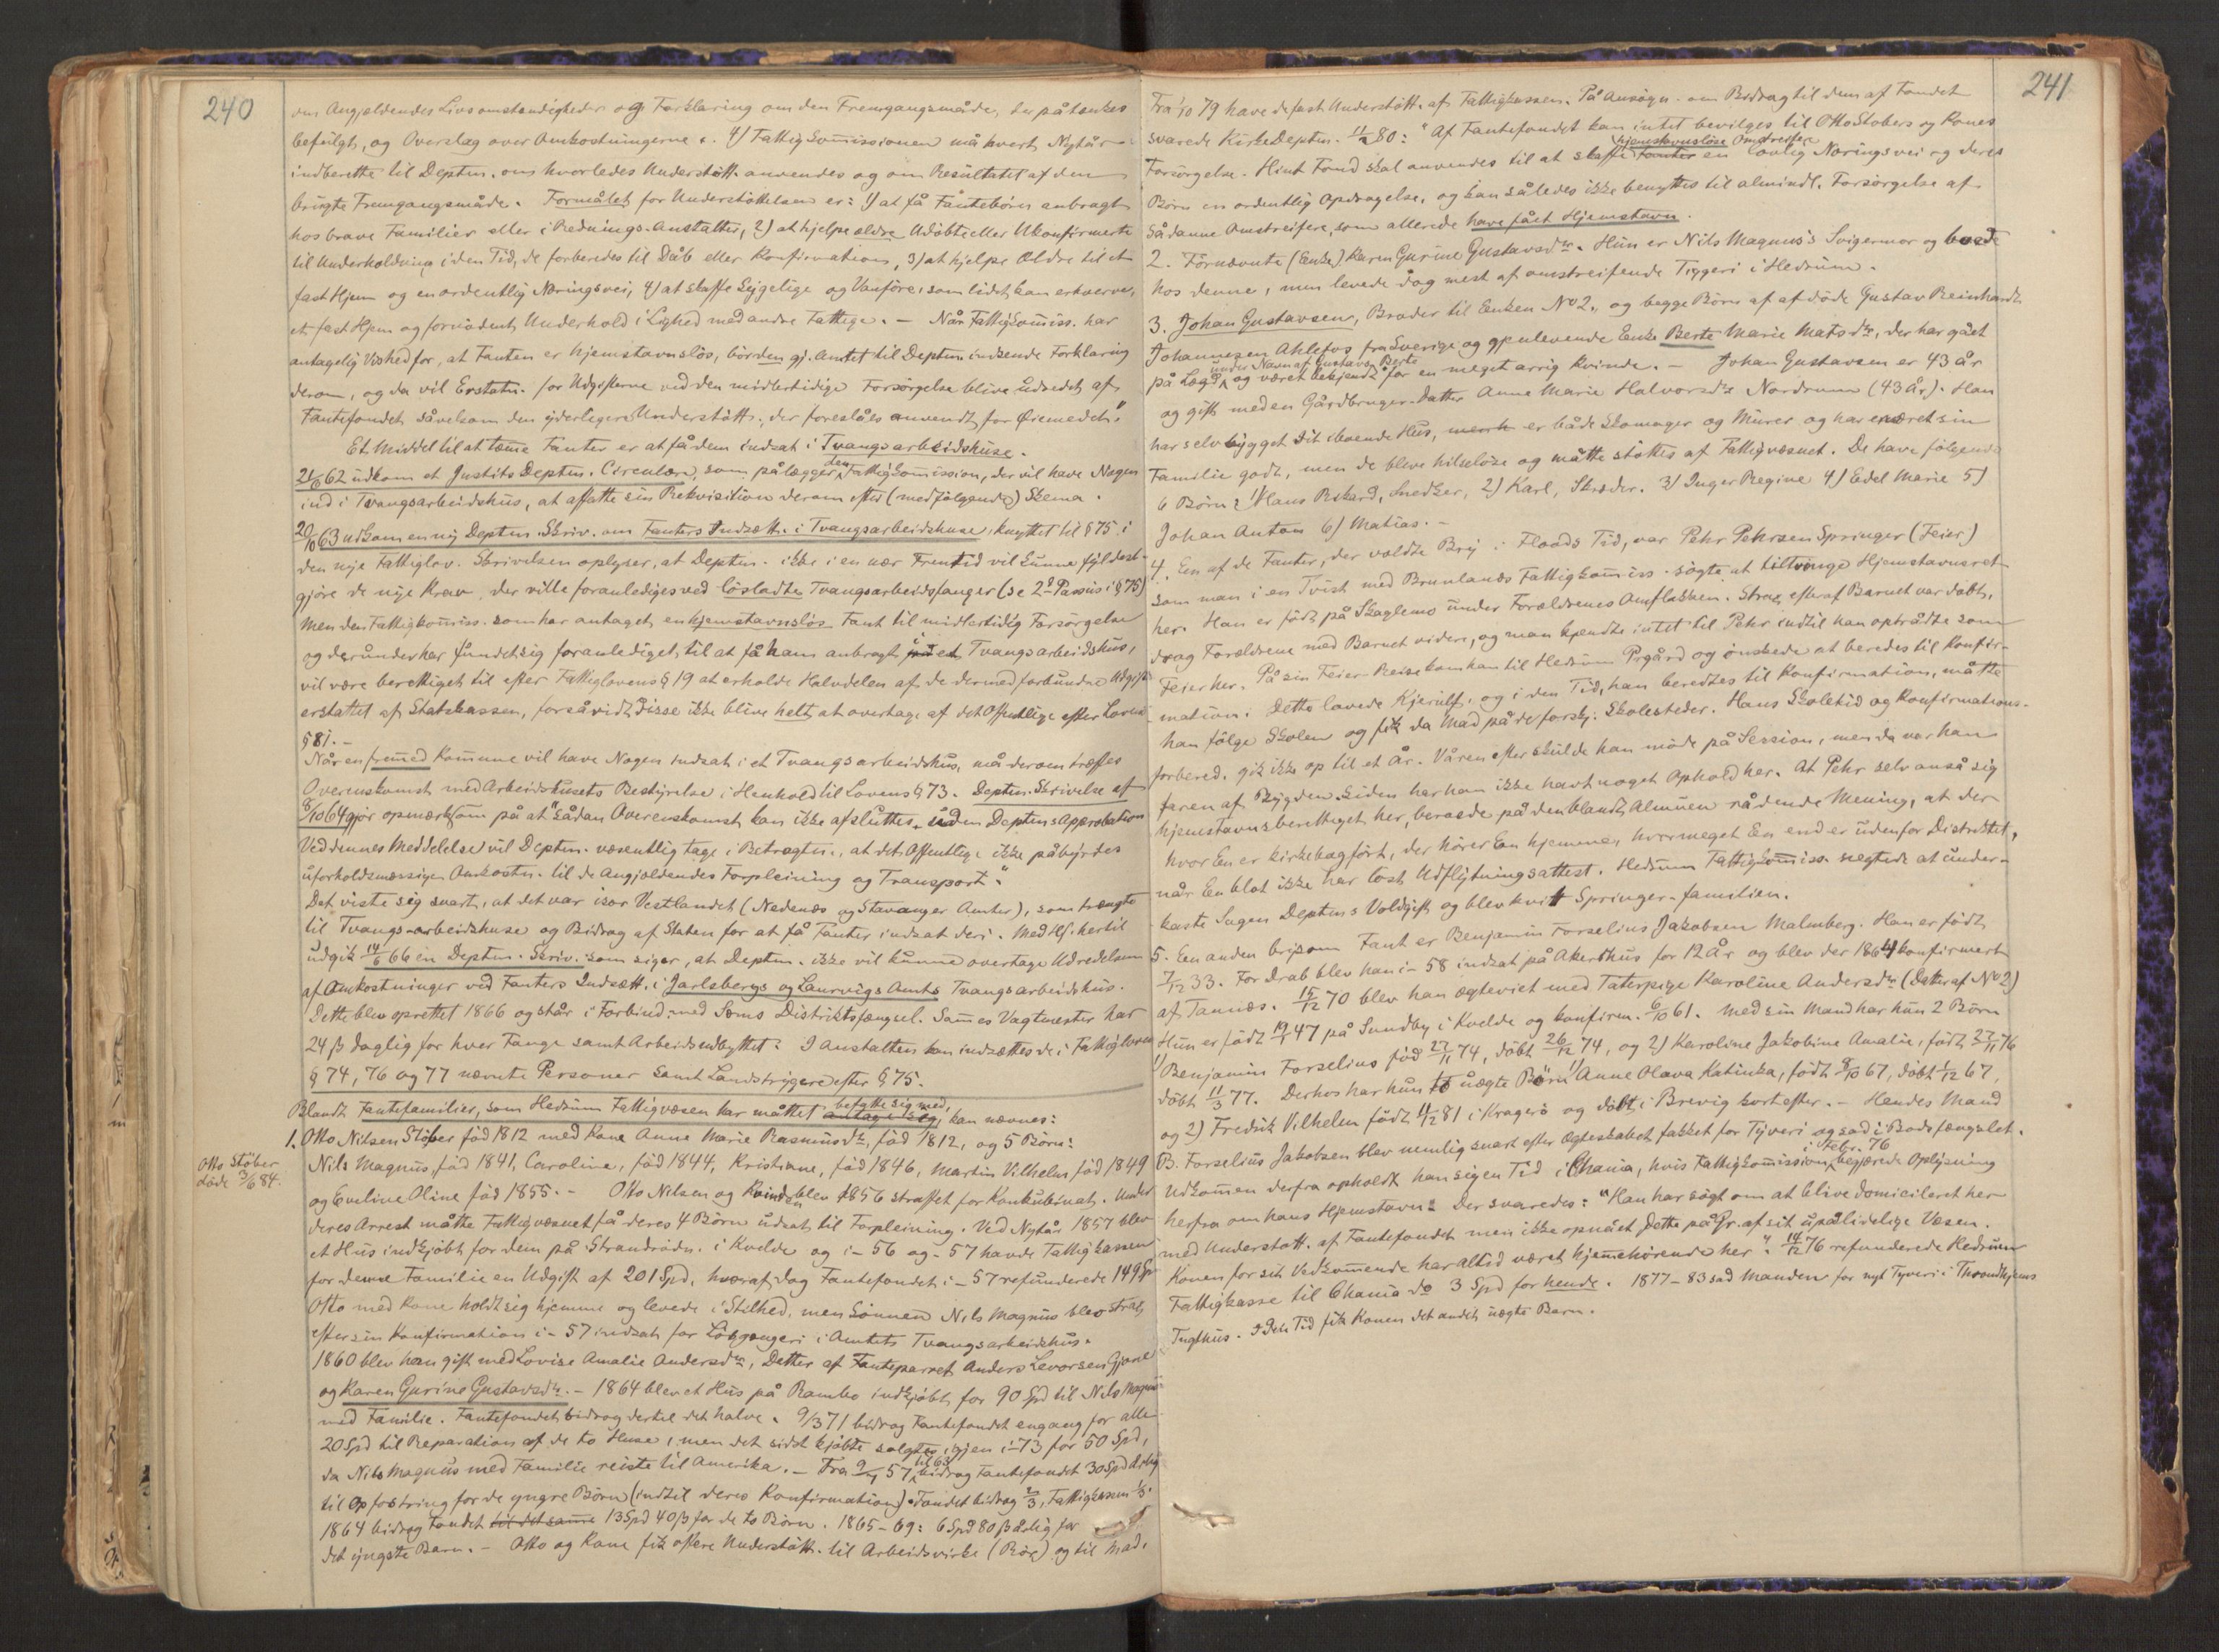 240
om Angjeldendes Livsomstændigheder og Forklaring om den Fremgangsmåde, der påtænkes
befulgt, og Overslag over Omkostningerne. 4) Fattigkom̄issionen må hvert Nytår
indberette til Deptm. om hvorledes Understött. anvendes og om Resultatet af den
brugte Fremgangsmåde. Formålet for Understöttelsen er: 1) at få Fantebörn anbragt
hos brave Familier eller i Rednings-Anstalter, 2) at hjelpe ældre Udöbte eller Ukonfirmerte
til Underholdning i den Tid, de forberedes til Dåb eller Konfirmation, 3) at hjelpe Ældre til et
fast Hjem og en ordentlig Næringsvei, 4) at skaffe Sygelige og Vanföre, som lidet kan erhverve,
et fast Hjem og fornödent Underhold i Lighed med andre Fattige. — Når Fattigkom̄iss. har
antagelig Vished for, at Fanten er hjemstavnslös, bör den gj. Amtet til Deptm. indsende Forklaring
derom, og da vil Erstatn. for Udgifterne ved den midlertidige Forsörgelse blive udredet af
Fantefondet såvelsom den yderligere Understött., der foreslåes anvendt for Öiemedet."
Et Middel til at tæme Fanter er at få dem indsat i Tvangsarbeidshuse.
21/6 62 udkom et Justits Deptm. Circulære, som pålægger den Fattigkom̄ission, der vil have Nogen
ind i Tvangsarbeidshus, at affatte sin Rekvisition derom efter (medfölgende) Skema.
20/10 63 udkom en ny Deptm. Skriv. om Fanters Indsætt. i Tvangsarbeidshuse, knyttet til § 75 i
den nye Fattiglov. Skrivelsen oplyser, at Deptm. ikke i en nær Fremtid vil kunne fyldest-
gjöre de nye Krav, der ville foranlediges ved lösladte Tvangsarbeidsfanger (se 2d Passus i § 75)
Men den Fattigkom̄iss. som har antaget en hjemstavnslös Fant til midlertidig Forsörgelse
og derunder har fundet sig foranlediget til at få ham anbragt i et Tvangsarbeidshus,
vil være berettiget til efter Fattiglovens § 19 at erholde Halvdelen af de dermed forbundne Udgift
erstattet af Statskassen, forsåvidt disse ikke blive helt at overtage af det Offentlige efter Lovens
§ 81. —
Når en fremed Kom̄une vil have Nogen indsat i et Tvangsarbeidshus, må derom træffes
Overenskomst med Arbeidshusets Bestyrelse i Henhold til Lovens § 73. Deptm. Skrivelse af
8/10 64 gjör opmærksom på at "sådan Overenskomst kan ikke afsluttes uden Deptms Approbation
Ved dennes Meddelelse vil Deptm. væsentlig tage i Betragtn., at det Offentlige ikke påbyrdes
uforholdsmæssige Omkostn. til de Angjældendes Forpleining og Transport."
Det viste sig snart, at det var især Vestlandet (Nedenæs og Stavanger Amter), som trængte
til Tvangs-arbeidshuse og Bidrag af Staten for at få Fanter indsat deri. Med Hs. hertil
udgik 14/6 66 en Deptm. Skriv. som siger, at Deptm. ikke vil kunne overtage Udredelsen
af Omkostninger ved Fanters Indsætt. i Jarlsbergs og Laurvigs Amts Tvangsarbeidshus.
Dette blev oprettet 1866 og står i Forbind. med Sems Distriktsfængsel. Sam̄es Vagtmester har
24 ß daglig for hver Fange samt Arbeidsudbyttet. I Anstalten kan indsættes de i Fattigloven
§ 74, 76 og 77 nævnte Personer samt Landstrygere efter § 75.
Blandt Fantefamilier, som Hedrum Fattigvæsen har måttet antage sig befatte sig med, kan nævnes:
1. Otto Nilsen Stöber föd 1812 med Kone Anne Marie Rasmusdtr, föd 1812, og 5 Börn:
Otto Stöber
döde 3/6 84.
Nils Magnus, föd 1841, Caroline, föd 1844, Kristiane, föd 1846, Martin Vilhelm föd 1849
og Eveline Oline föd 1855. — Otto Nilsen og Kvinde blev 1856 straffet for Konkubinat. Under
deres Arrest måtte Fattigvæsnet få deres 4 Börn udsat til Forpleining. Ved Nytår 1857 blev
et Hus indkjöbt for dem på Strandrödn. i Kvelde og i -56 og -57 havde Fattigkassen
for denne Familie en Udgift af 201 Spd, hvoraf dog Fantefondet i -57 refunderede 149 Sp
Otto med Kone holdt sig hjemme og levede i Stilhed, men Sönnen Nils Magnus blev strax
efter sin Konfirmation i -57 indsat for Lösgjengeri i Amtets Tvangsarbeidshus.
1860 blev han gift med Lovise Amalie Andersdtr, Datter af Fanteparret Anders Levorsen Gjone
og Karen Gurine Gustavsdtr. — 1864 blev et Hus på Rambo indkjöbt for 90 Spd til Nils Magnus
med Familie. Fantefondet bidrog dertil det halve. 9/3 71 bidrog Fantefondet engang for alle
20 Spd til Reparation af de to Huse, men det sidst kjöbte solgtes igjen i -73 for 50 Spd,
da Nils Magnus med Familie reiste til Amerika. — Fra 9/1 57 til 63 bidrog Fantefondet 30 Spd årlig
til Opfostring for de yngre Börn (indtil deres Konfirmation). Fondet bidrog 2/3, Fattigkassen 1/3.
1864 bidrog Fondet til det samme 13 Spd 40 ß for de to Börn. 1865-69: 6 Spd 80 ß årlig for
det yngste Barn. — Otto og Kone fik oftere Understött. til Arbeidsvirke (Rör) og til Mad.
241
Fra 1/10 79 have de fast Understött. af Fattigkassen. På Ansögn. om Bidrag til dem af Fondet
svarede Kirke Deptm. 11/2 80: "Af Fantefondet kan intet bevilges til Otto Stobers og Kones
Forsörgelse. Hint Fond skal anvendes til at skaffe Fanter hjemstavnslöse Omstreifere en lovlig Næringsvei og deres
Börn en ordentlig Opdragelse, og kan således ikke benyttes til almindl. Forsörgelse af
sådanne Omstreifere, som allerede have fået Hjemstavn.
2. Förnævnte (Enke) Karen Gurine Gustavsdtr. Hun er Nils Magnus's Svigermor og boede
hos denne, men levede dog mest af omstreifende Tiggeri i Hedrum.
3. Johan Gustavsen, Broder til Enken No 2, og begge Börn af afdöde Gustav Reinhardt
Johannesen Ahlefos fra Sverige og gjenlevende Enke Berte Marie Matsdtr, der har gået
på Lægd under Navn af Gustavs Berte og været bekjendt for en meget arrig Kvinde. — Johan Gustavsen er 43 år
og gift med en Gårdbruger-Datter Anne Marie Halvorsdtr Nordrum (43 år). Han
har selv bygget dit iboende Hus, er både Skomager og Murer og har ernæret sin
Familie godt, men de bleve hilselöse og måtte stöttes af Fattigvæsnet. De have fölgende
6 Börn: 1) Hans Rikard, Snedker, 2) Karl, Skræder. 3) Inger Regine 4) Edel Marie 5)
Johan Anton 6) Matias. —
4. En af de Fanter, der voldte Bry i Floods Tid, var Pehr Pehrsen Springer (Feier)
som man i en Tvist med Brunlanæs Fattigkom̄iss. sögte at tiltvinge Hjemstavnsret
her. Han er födt på Skaglemo under Forældrenes Omflakken. Strax efter af Barnet var döbt,
drog Forældrene med Barnet videre, og man kjendte intet til Pehr indtil han optrådte som
Feier her. På sin Feier-Reise kom han til Hedrum Prgård og önskede at beredes til Konfir-
mation. Dette lavede Kjerulf, og i den Tid, han beredtes til Konfirmation, måtte
han fölge Skolen og fik da Mad på de forskj. Skolesteder. Hans Skoletid og Konfirmations-
forbered. gik ikke op til et År. Våren efter skulde han möde på Session, men da var han
faren af Bygden. Siden har han ikke havt noget Ophold her. At Pehr selv anså sig
hjemstavnsberettiget her, beroede på den blandt Almuen rådende Mening, at der
hvor En er kirkebogfört, der hörer En hjemme, hvormeget En end er udenfor Distriktet,
når En blot ikke har löst Udflytningsattest. Hedrum Fattigkom̄iss. negtede at under-
kaste Sagen Deptms Voldgift og blev kvit Springer-familien.
5. En anden brysom Fant er Benjamin Forselius Jakobsen Malmberg. Han er födt
7/12 33. For Drab blev han i -58 indsat på Akershus for 12 År og blev der 1864 konfirmert
af Tannæs. 15/12 70 blev han ægteviet med Taterpige Karoline Andersdtr (Datter af No 2)
Hun er födt 19/1 47 på Sundby i Kvelde og konfirm. 6/10 61. Med sin Mand har hun 2 Börn
1) Benjamin Forselius föd 27/11 74, döbt 26/12 74, og 2) Karoline Jakobine Amalie, födt 27/11 76
döbt 11/3 77. Derhos har hun to uægte Börn 1) Anne Olava Katinka, födt 8/10 67, döbt 1/12 67,
og 2) Fredrik Vilhelm födt 11/12 81 i Kragerö og döbt i Brevig kort efter. — Hendes Mand
B. Forselius Jakobsen blev nemlig snart efter Ægteskabet fakket for Tyveri og sad i Bodsfængslet.
Udkommen derfra opholdt han sig en Tid i Chania, hvis Fattigkom̄ission i Febr. 76 begjærede Oplysning
herfra om hans Hjemstavn. Der svaredes: "Han har sögt om at blive domicileret her
med Understött. af Fantefondet men ikke opnået Dette på Gr. af sit upålidelige Væsen.
Konen for sit Vedkommende har altid været hjemmehörende her". 14/12 76 refunderede Hedrum
Fattigkasse til Chania do 3 Spd for hende. 1877-83 sad Manden for nyt Tyveri i Throndhjems
Tugthus. I den Tid fik Konen det andet uægte Barn.